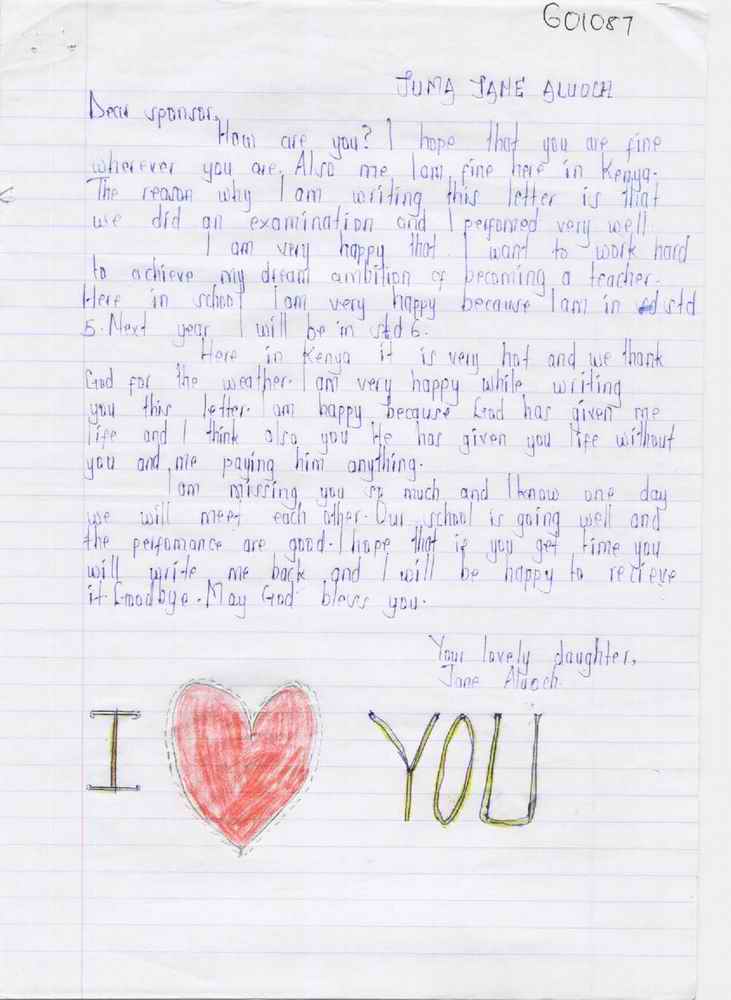 G01087
JUMA JANE ALUOCH
Dear sponsor,
How are you? I hope that you are fine
wherever you are. Also me I am fine here in Kenya.
The reason why I am writing this letter is that
we did an examination and I perfomed very well.
I am very happy that. I want to work hard
to achieve my dream ambition of becoming a teacher.
Here in school I am very happy because I am in std
5. Next year I will be in std 6.
Here in Kenya it is very hot and we thank
God for the weather. I am very happy while writing
you this letter. I am happy because God has given me
life and I think also you He has given you life without
you and me paying him anything.
I am missing you so much and I know one day
we will meet each other. Our school is going well and
the perfomance are good. I hope that if you get time you
will write me back and I will be happy to recieve
it. Goodbye. May God bless you.
Your lovely daughter,
Jane Aluoch.
I YOU